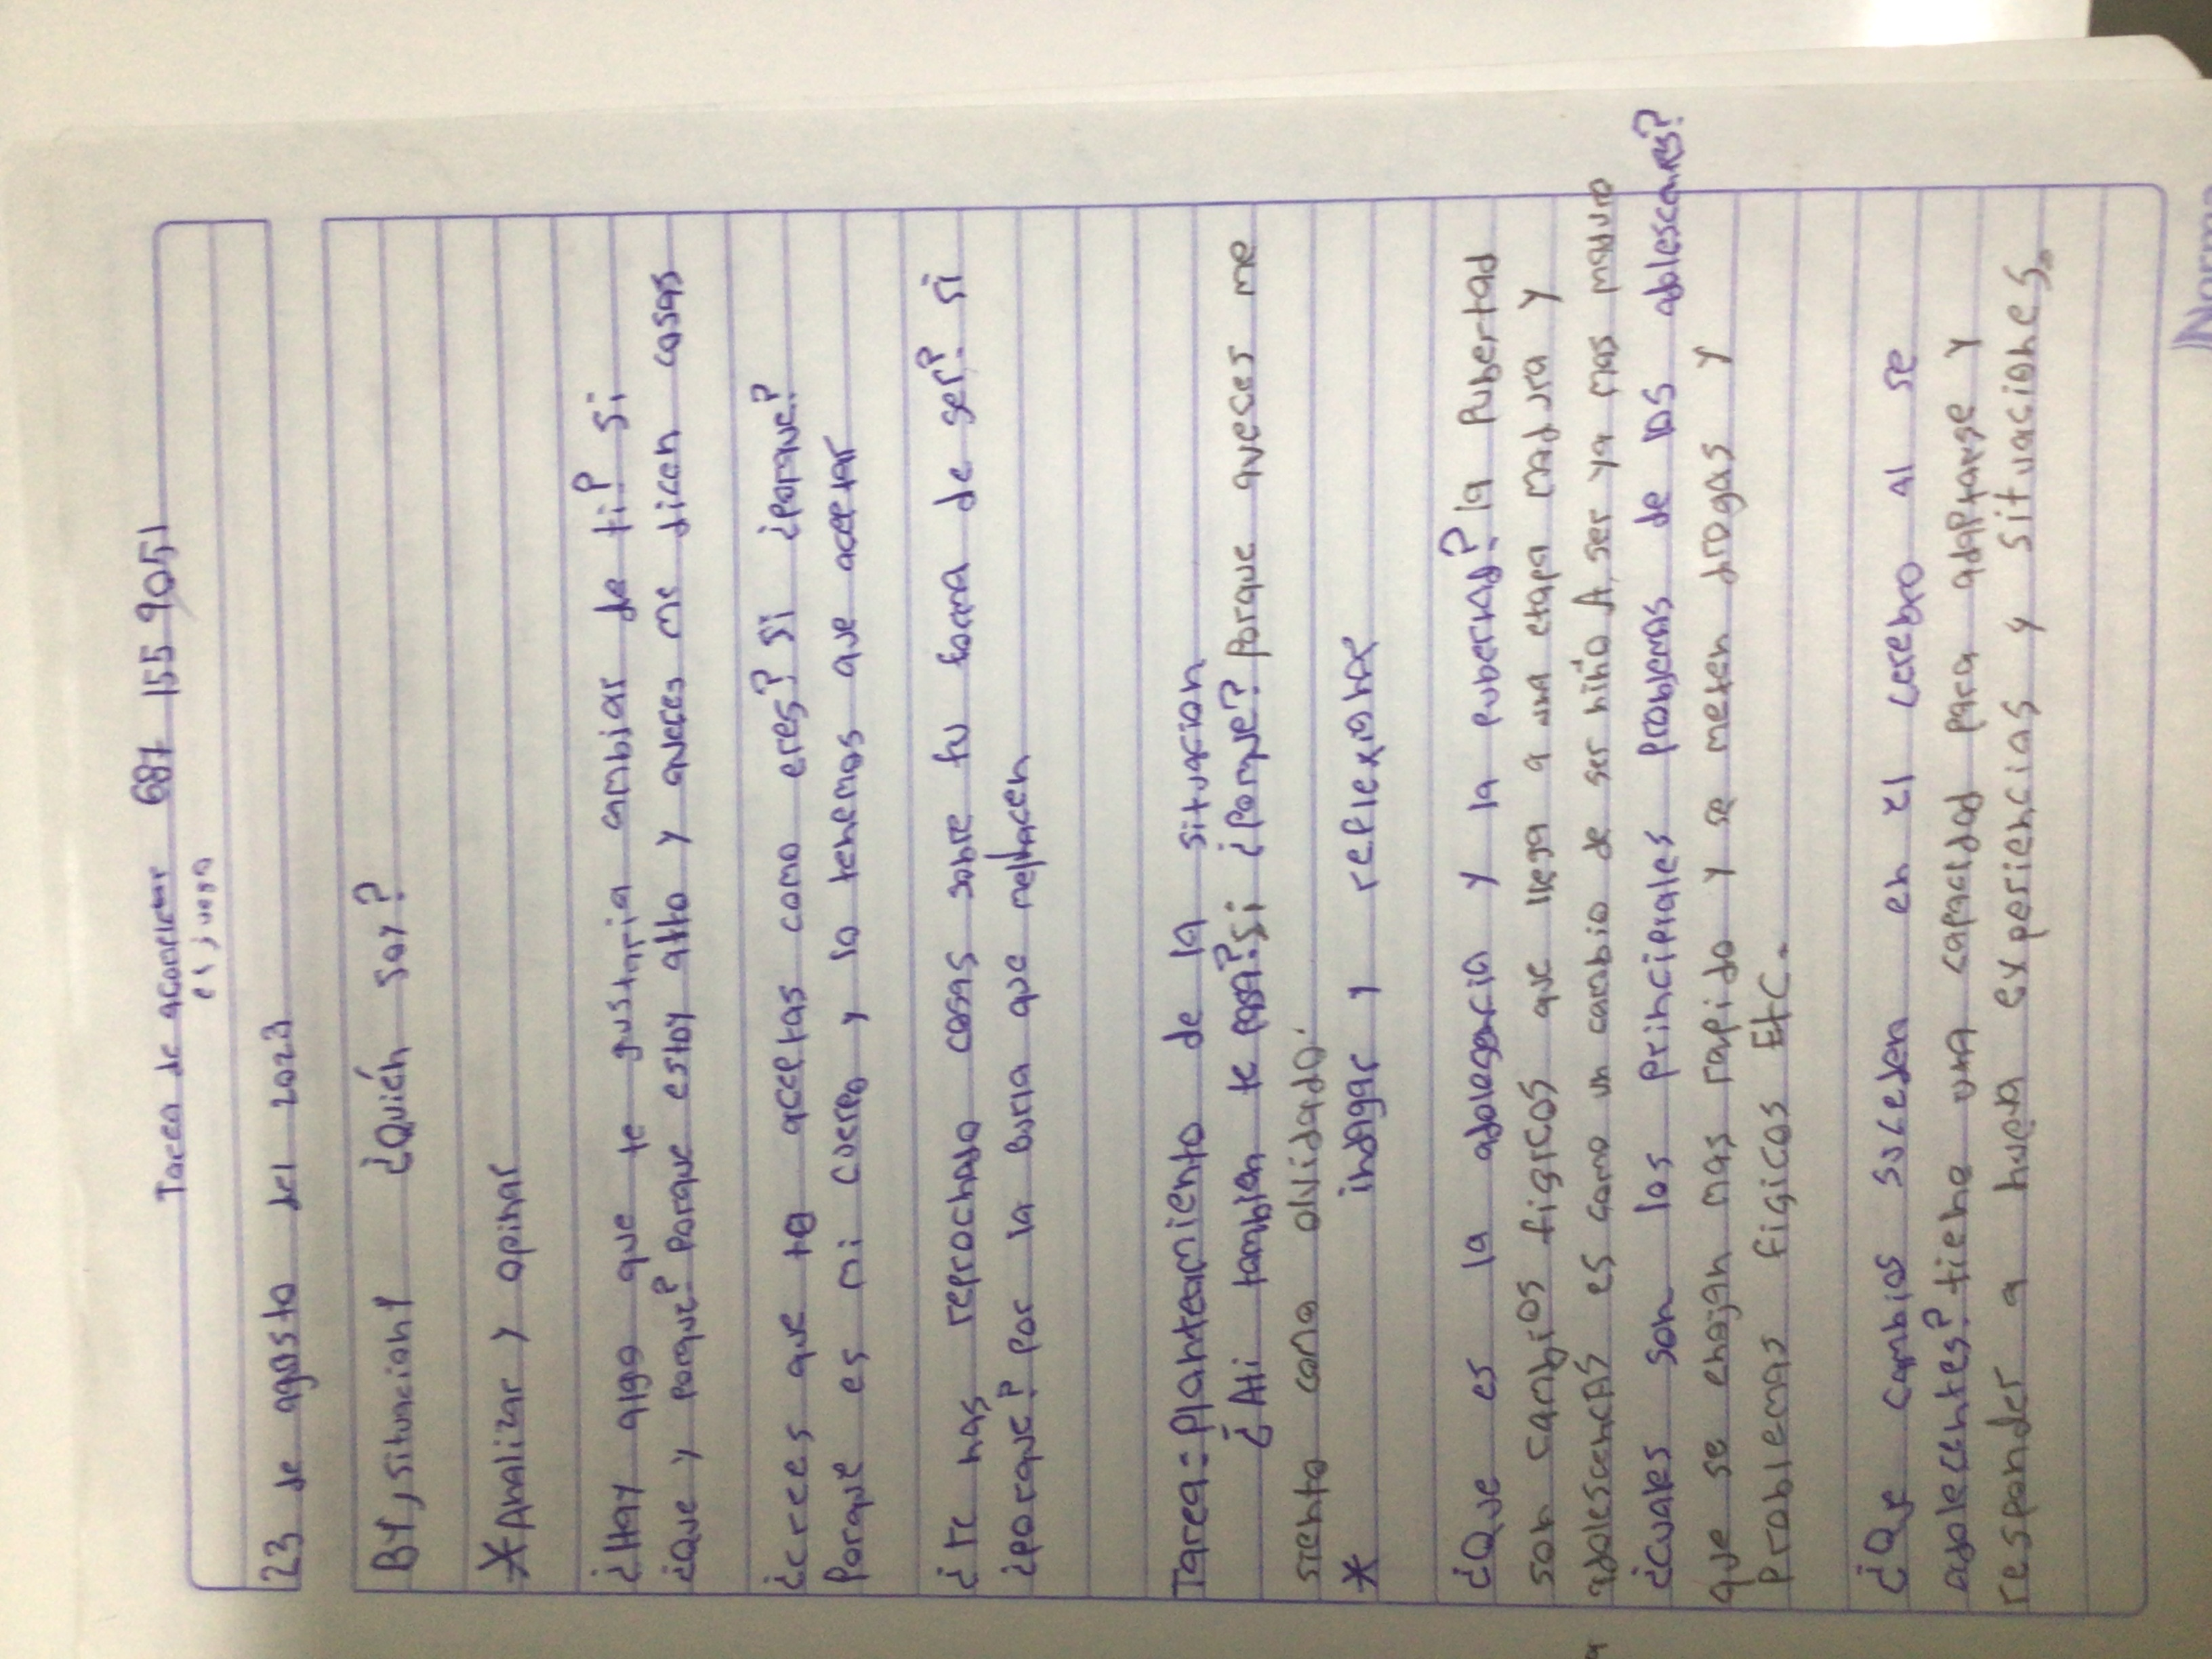 Tarea de acompletar 687 155 9051
el juego
23 de agosto del 2023
BY, situacion1 ¿Quién soy?
*Analizar y opinar
¿Hay algo que te gustaria cambiar de ti? si
¿Que y porque? Porque estoy alto y aveces me dicen cosas
¿crees que te aceptas como eres? si ¿porque?
Porque es mi cuerpo y lo tenemos que aceptar
¿Te has reprochado cosas sobre tu forma de ser? si
¿porque? por la burla que me hacen
Tarea= Planteamiento de la situacion
¿Ati tambien te pasa? si ¿Porque? Porque aveces me
siento como olvidado.
* indagar y reflexionar
¿Que es la adolesencia y la pubertad? la Pubertad
son cambios figicos que llega a una etapa madura y
adolescencias es como un cambio de ser niño A ser ya mas maduro
¿cuales son los principales problemas de los adolescentes?
que se enojan mas rapido y se meten drogas y
Problemas figicos Etc.
¿Que cambios suceden en el cerebro al se
adolecentes? tiene una capacidad para adaptarse y
responder a nueva experiencias y situaciones.
Norma